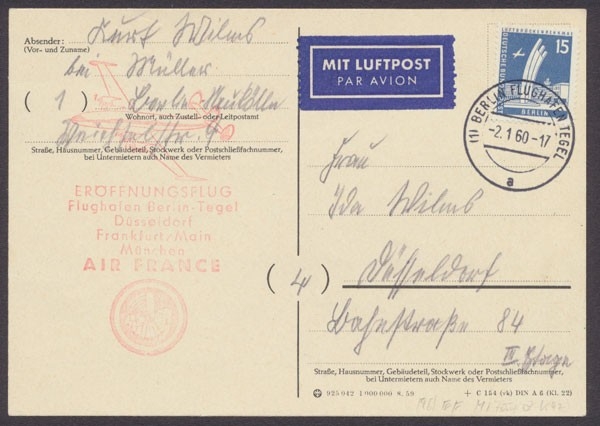 Absender:
(Vor- und Zuname)
Kurt Wilms
bei Müller
( 1 ) Berlin-Neukölln
Wohnort, auch Zustell- oder Leitpostamt
Straße, Hausnummer, Gebäudeteil, Stockwerk oder Postschließfachnummer,
bei Untermietern auch Name des Vermieters
ERÖFFNUNGSFLUG
Flughafen Berlin-Tegel
Düsseldorf
Frankfurt/Main
München
AIR FRANCE
MIT LUFTPOST
PAR AVION
15
DEUTSCHE BUNDESPOST
BERLIN
(1) BERLIN FLUGHAFEN TEGEL
-2.1.60-17
a
Frau
Ida Wilms
( 4 ) Düsseldorf
Bahnstraße 84
IV. Etage
Straße, Hausnummer, Gebäudeteil, Stockwerk oder Postschließfachnummer,
bei Untermietern auch Name des Vermieters
925 942 1 000 000 8. 59 + C 154 (vk) DIN A 6 (Kl. 22)